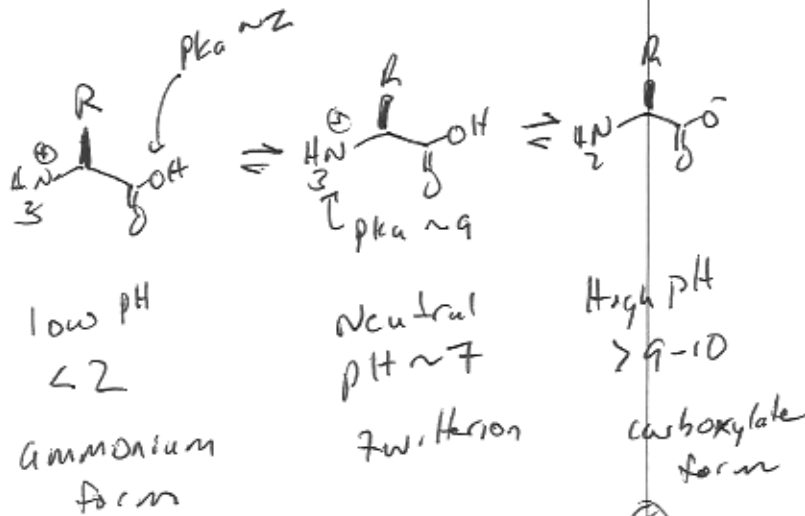 pka ~2
R
R
R
H3N⊕ OH O
⇌
H3N⊕ OH O
⇌
H2N O⁻ O
pka ~9
low pH
<2
ammonium
form
Neutral
pH ~7
zwitterion
High pH
>9-10
carboxylate
form